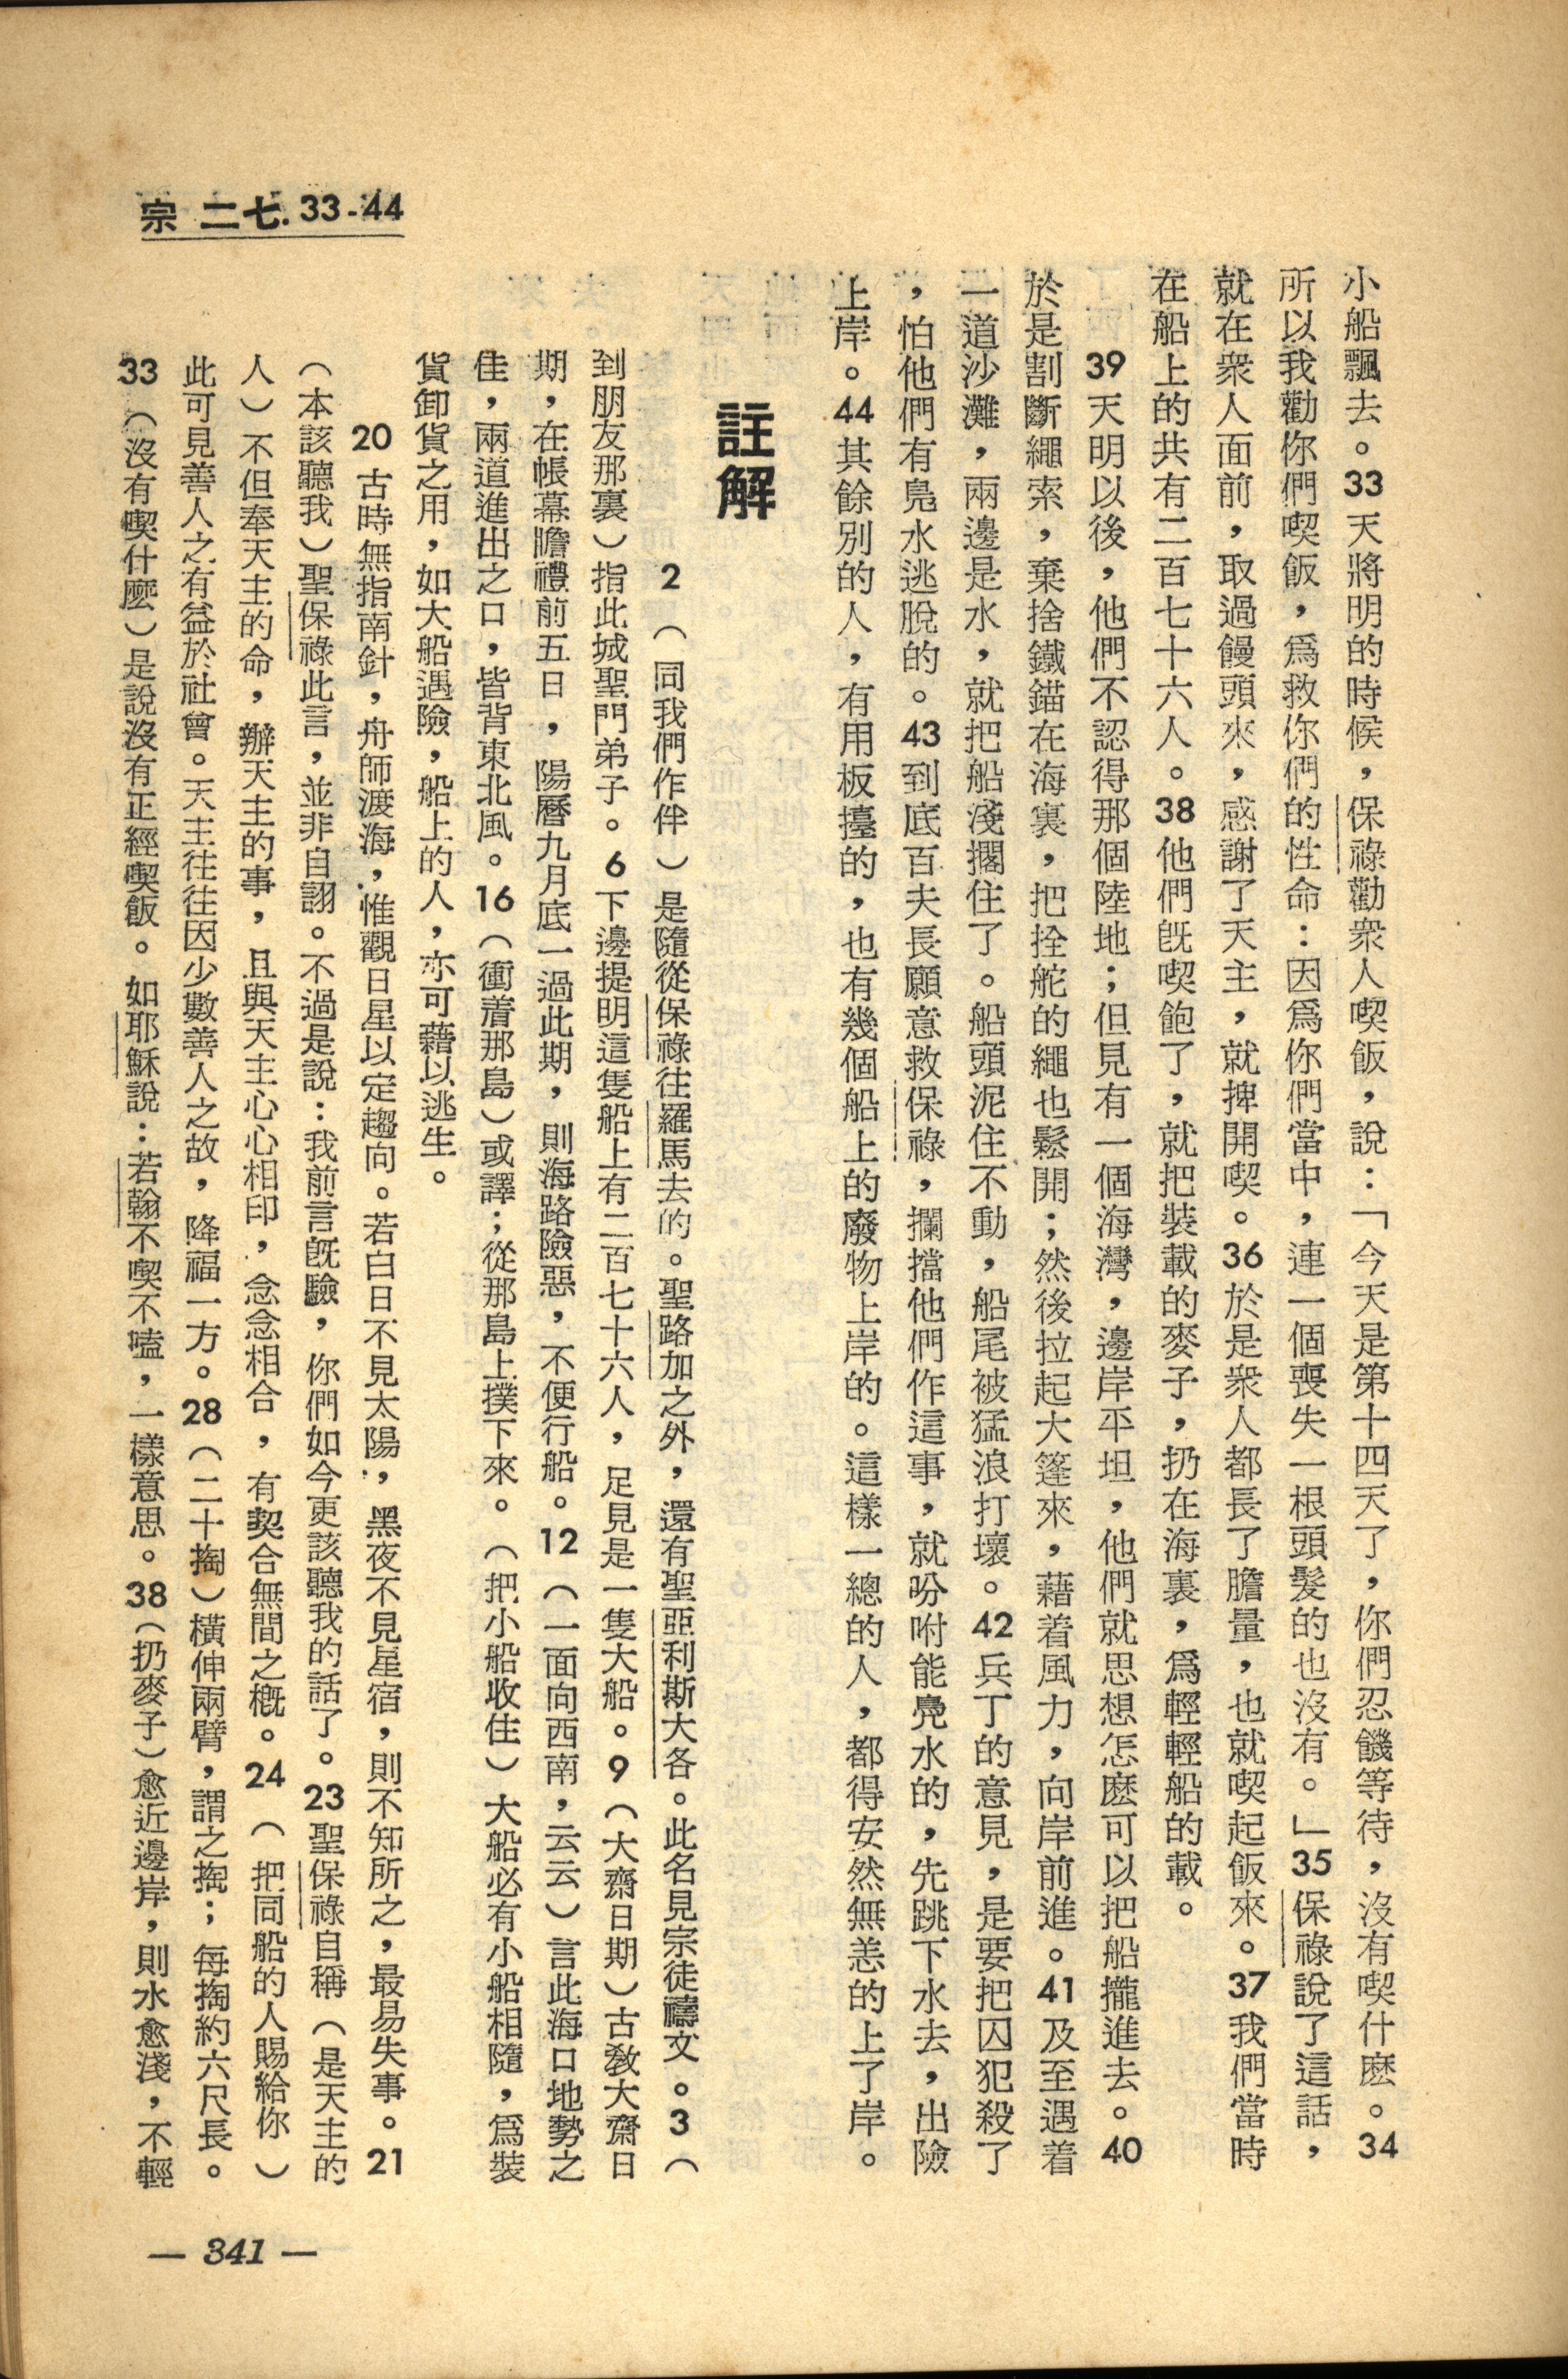 宗 二七. 33-44
小船飄去。33天將明的時候，保祿勸衆人喫飯，說：「今天是第十四天了，你們忍饑等待，沒有喫什麽。34
所以我勸你們喫飯，爲救你們的性命：因爲你們當中，連一個喪失一根頭髮的也沒有。」35保祿說了這話，
就在衆人面前，取過饅頭來，感謝了天主，就捭開喫。36於是衆人都長了膽量，也就喫起飯來。37我們當時
在船上的共有二百七十六人。38他們旣喫飽了，就把裝載的麥子，扔在海裏，爲輕輕船的載。
39天明以後，他們不認得那個陸地；但見有一個海灣，邊岸平坦，他們就思想怎麽可以把船攏進去。40
於是割斷繩索，棄捨鐵錨在海裏，把拴舵的繩也鬆開；然後拉起大篷來，藉着風力，向岸前進。41及至遇着
一道沙灘，兩邊是水，就把船淺擱住了。船頭泥住不動，船尾被猛浪打壞。42兵丁的意見，是要把囚犯殺了
，怕他們有鳧水逃脫的。43到底百夫長願意救保祿，攔擋他們作這事，就吩咐能鳧水的，先跳下水去，出險
上岸。44其餘別的人，有用板擡的，也有幾個船上的廢物上岸的。這樣一總的人，都得安然無恙的上了岸。
註解
2（同我們作伴）是隨從保祿往羅馬去的。聖路加之外，還有聖亞利斯大各。此名見宗徒禱文。3（
到朋友那裏）指此城聖門弟子。6下邊提明這隻船上有二百七十六人，足見是一隻大船。9（大齋日期）古敎大齋日
期，在帳幕瞻禮前五日，陽曆九月底一過此期，則海路險惡，不便行船。12（一面向西南，云云）言此海口地勢之
佳，兩道進出之口，皆背東北風。16（衝着那島）或譯；從那島上撲下來。（把小船收住）大船必有小船相隨，爲裝
貨卸貨之用，如大船遇險，船上的人，亦可藉以逃生。
20 古時無指南針，舟師渡海，惟觀日星以定趨向。若白日不見太陽，黑夜不見星宿，則不知所之，最易失事。21
（本該聽我）聖保祿此言，並非自詡。不過是說：我前言旣驗，你們如今更該聽我的話了。23聖保祿自稱（是天主的
人）不但奉天主的命，辦天主的事，且與天主心心相印，念念相合，有契合無間之槪。24（把同船的人賜給你）
此可見善人之有益於社會。天主往往因少數善人之故，降福一方。28（二十掏）橫伸兩臂，謂之掏；每掏約六尺長。
33（沒有喫什麽）是說沒有正經喫飯。如耶穌說：若翰不喫不嗑，一樣意思。38（扔麥子）愈近邊岸，則水愈淺，不輕
— 341 —